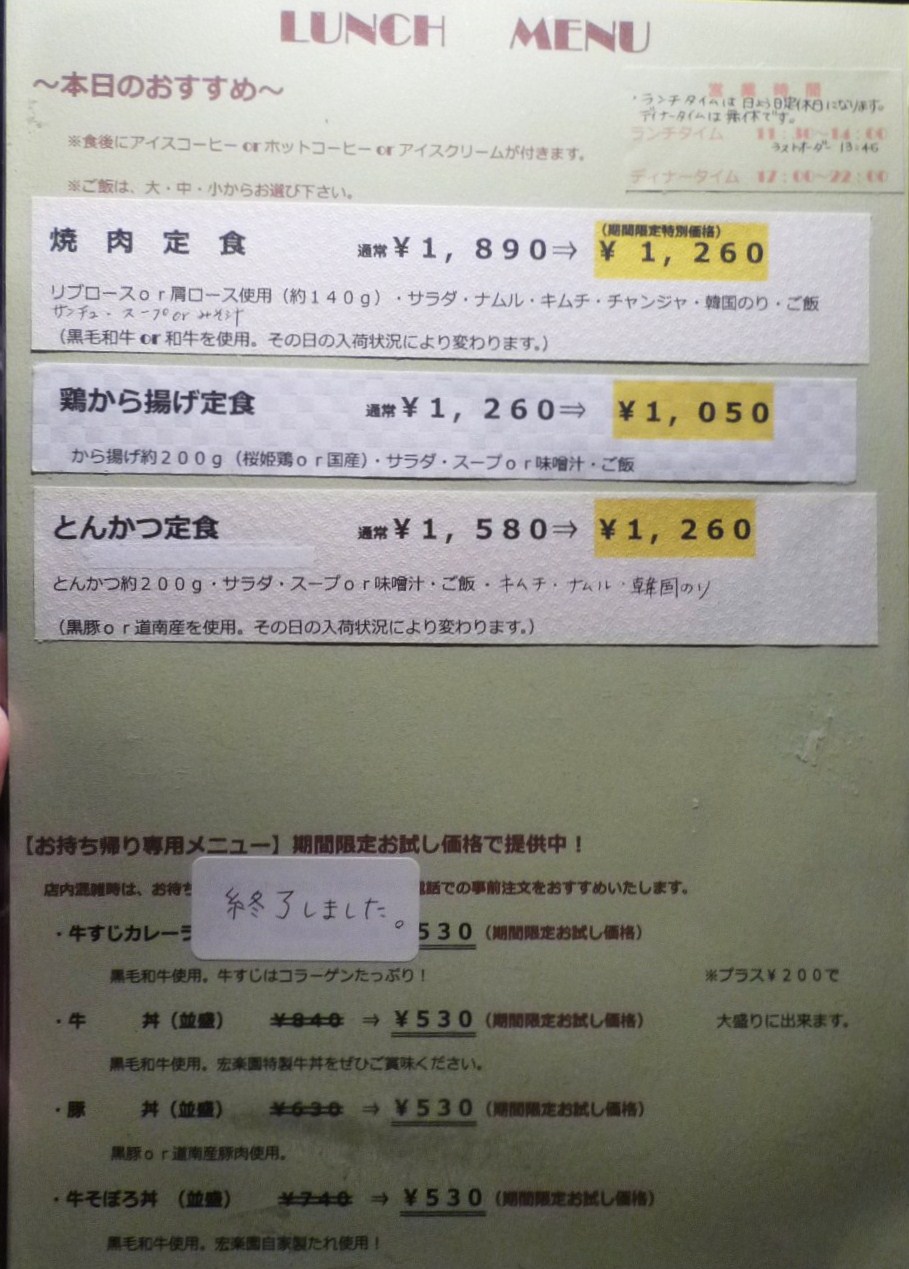 LUNCH MENU
～本日のおすすめ～
営業時間
・ランチタイムは日よう日定休日になります。
ディナータイムは無休です。
ランチタイム 11：30～14：00
ラストオーダー 13:45
ディナータイム 17：00～22：00
※食後にアイスコーヒーorホットコーヒーorアイスクリームが付きます。
※ご飯は、大・中・小からお選び下さい。
焼肉定食 通常￥1，890⇒ （期間限定特別価格） ￥1，260
リブロースor肩ロース使用（約140g）・サラダ・ナムル・キムチ・チャンジャ・韓国のり・ご飯
サンチュ・スープorみそ汁
（黒毛和牛or和牛を使用。その日の入荷状況により変わります。）
鶏から揚げ定食 通常￥1，260⇒ ￥1，050
から揚げ約200g（桜姫鶏or国産）・サラダ・スープor味噌汁・ご飯
とんかつ定食 通常￥1，580⇒ ￥1，260
とんかつ約200g・サラダ・スープor味噌汁・ご飯・キムチ・ナムル・韓国のり
（黒豚or道南産を使用。その日の入荷状況により変わります。）
【お持ち帰り専用メニュー】期間限定お試し価格で提供中！
店内混雑時は、お待ち 電話での事前注文をおすすめいたします。
終了しました。
・牛すじカレーラ 530（期間限定お試し価格）
黒毛和牛使用。牛すじはコラーゲンたっぷり！ ※プラス￥200で
・牛 丼（並盛） ￥840 ⇒ ￥530（期間限定お試し価格） 大盛りに出来ます。
黒毛和牛使用。宏楽園特製牛丼をぜひご賞味ください。
・豚 丼（並盛） ￥630 ⇒ ￥530（期間限定お試し価格）
黒豚or道南産豚肉使用。
・牛そぼろ丼（並盛） ￥740 ⇒ ￥530（期間限定お試し価格）
黒毛和牛使用。宏楽園自家製たれ使用！